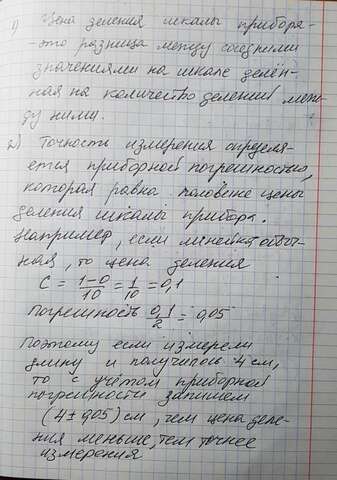 1) Цена деления шкалы прибора-
-это разница между соседними
значениями на шкале делён-
ная на количество делений меж-
ду ними.
2) Точность измерения определя-
ется приборной погрешностью,
которая равна половине цены
деления шкалы прибора.
Например, если линейка обыч-
ная, то цена деления
C = (1-0)/10 = 1/10 = 0,1
Погрешность 0,1/2 = 0,05
Поэтому если измерели
длину и получилось 4 см,
то с учётом приборной
погрешности запишем
(4 ± 0,05) см, чем цена деле-
ния меньше, тем точнее
измерения